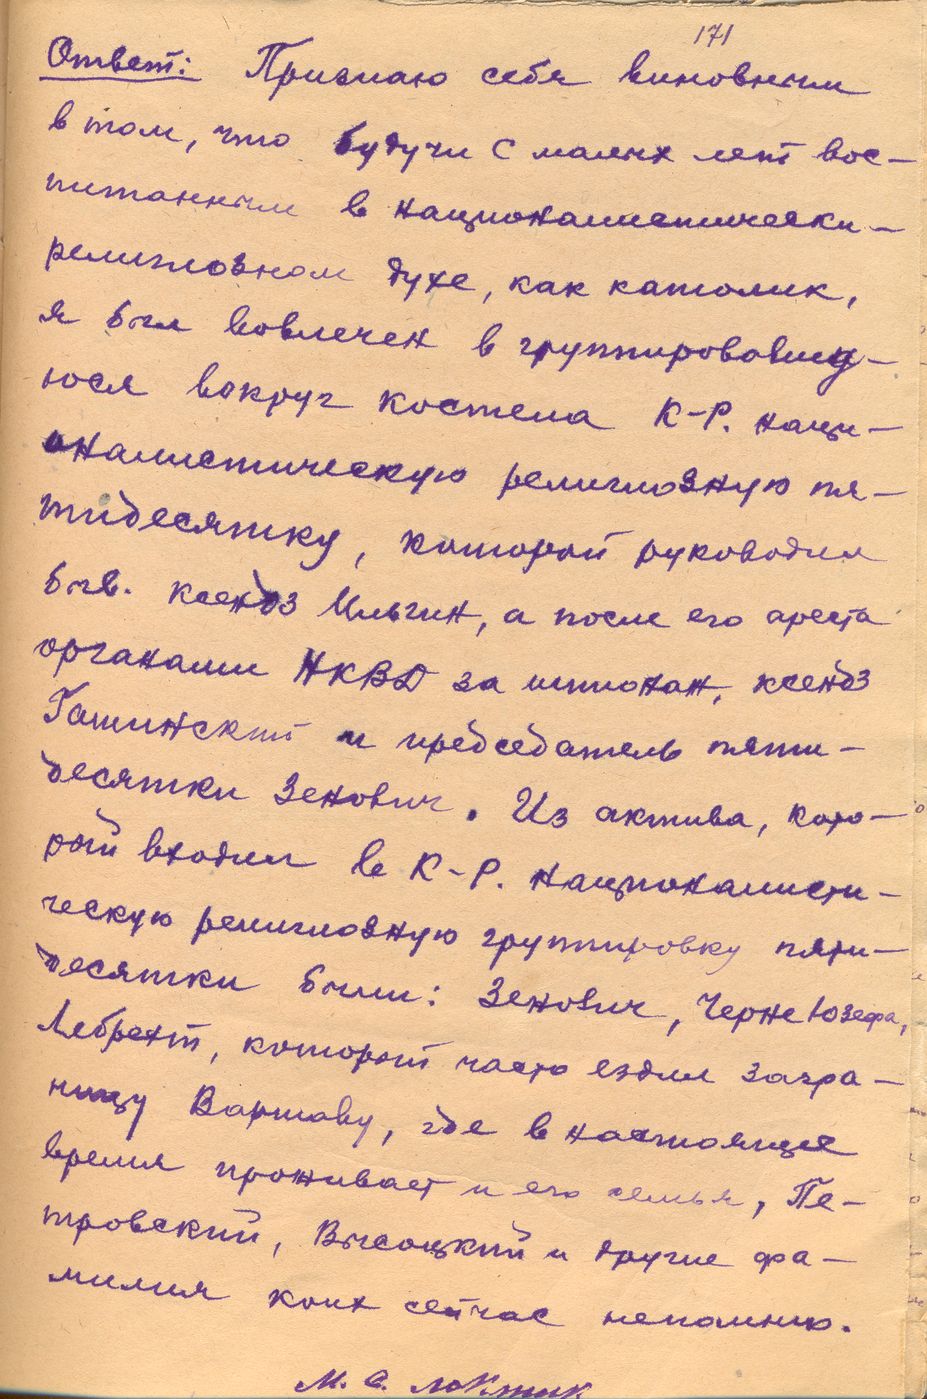 171
Ответ: Признаю себя виновным
в том, что будучи с малых лет вос-
питанным в националистически-
религиозном духе, как католик,
я был вовлечен в группировавшу-
юся вокруг костела К-Р. наци-
оналистическую религиозную пя-
тидесятку, которой руководил
быв. ксендз Ильгин, а после его ареста
органами НКВД за шпионаж, ксендз
Гашинский и председатель пяти-
десятки Зенович. Из актива, кото-
рый входил в К-Р. националисти-
ческую религиозную группировку пяти-
десятки были: Зенович, Черне Юзефа,
Лебрехт, который часто ездил загра-
ницу Варшаву, где в настоящее
время проживает и его семья, Пе-
тровский, Высоцкий и другие фа-
милия коих сейчас непомню.
М. Локтик